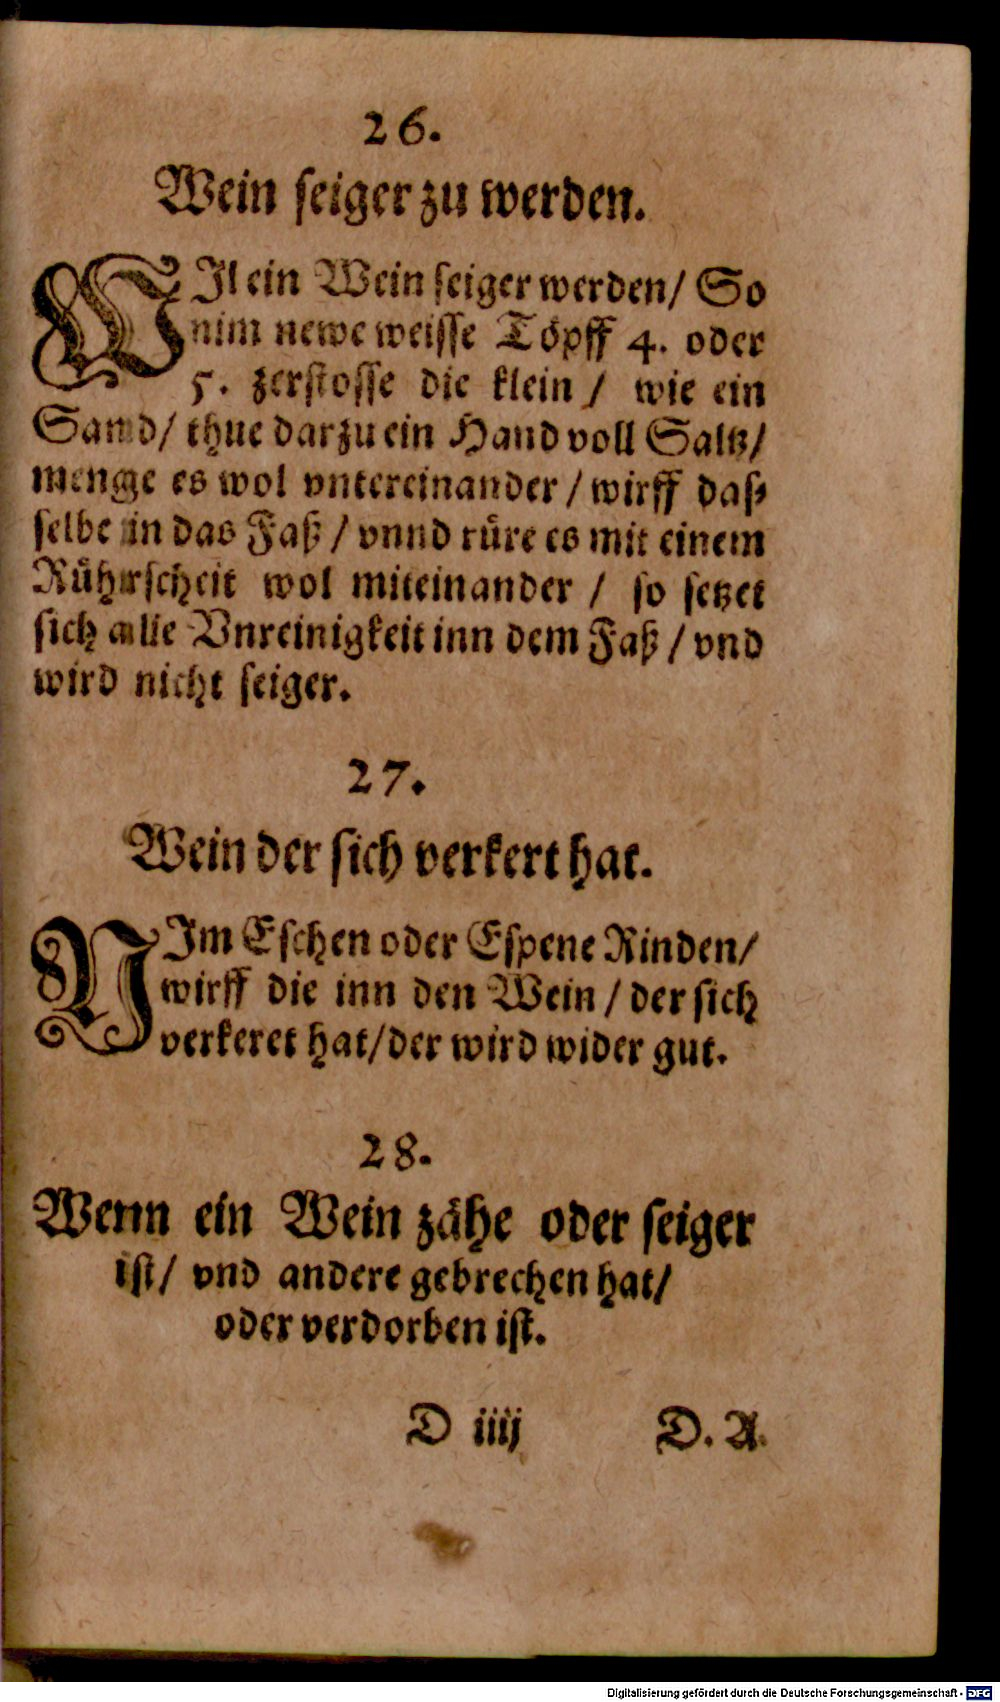 26.
Wein seiger zu werden.
WIl ein Wein seiger werden/ So
nim newe weisse Töpff 4. oder
5. zerstosse die klein / wie ein
Sand/ thue darzu ein Hand voll Saltz/
menge es wol vntereinander / wirff das⸗
selbe in das Faß / vnnd rüre es mit einem
Rührscheit wol miteinander / so setzet
sich alle Vnreinigkeit inn dem Faß / vnd
wird nicht seiger.
27.
Wein der sich verkert hat.
NIm Eschen oder Espene Rinden/
wirff die inn den Wein / der sich
verkeret hat/der wird wider gut.
28.
Wenn ein Wein zähe oder seiger
ist/ vnd andere gebrechen hat/
oder verdorben ist.
D iiij D. A.
Digitalisierung gefördert durch die Deutsche Forschungsgemeinschaft - DFG